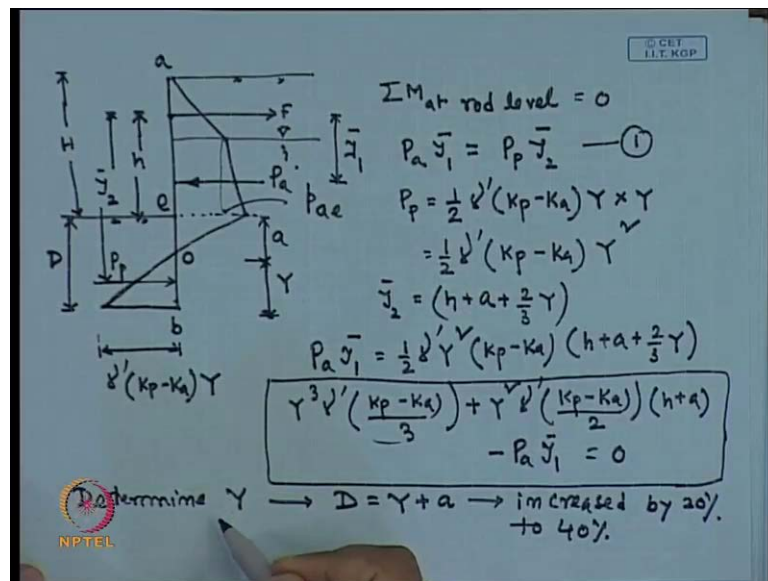 © CET
I.I.T. KGP
a
H
ȳ₂
h
F
ȳ₁
Pa
Pae
e
D
Pp
o
a
Y
b
γ'(Kp-Ka)Y
ΣM at rod level = 0
Pa ȳ₁ = Pp ȳ₂ — ①
Pp = 1/2 γ'(Kp-Ka) Y × Y
= 1/2 γ'(Kp-Ka) Y²
ȳ₂ = (h+a+2/3 Y)
Pa ȳ₁ = 1/2 γ' Y² (Kp-Ka) (h+a+2/3 Y)
Y³ γ' ((Kp-Ka)/3) + Y² γ' ((Kp-Ka)/2)) (h+a)
- Pa ȳ₁ = 0
Determine Y → D = Y+a → increased by 20%
to 40%.
NPTEL